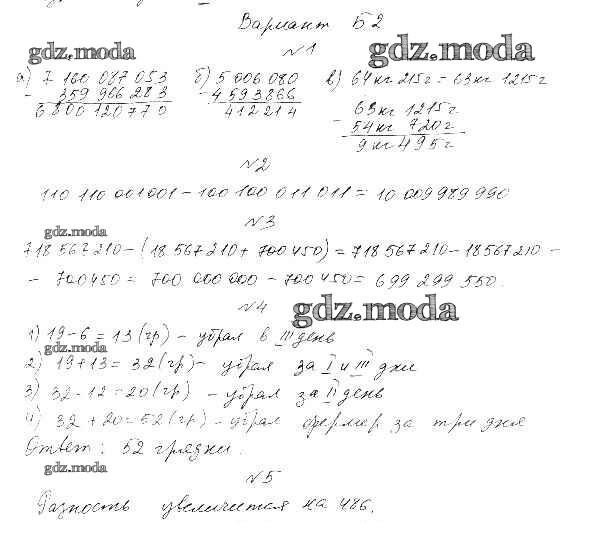 Вариант Б2
№1
gdz.moda gdz.moda
а) 7 160 087 053 б) 5 006 080 в) 64кг 215г = 63кг 1215г
- 359 966 283 - 4 593 866 63кг 1215г
6 800 120 770 412 214 - 54кг 720г
9 кг 495г
№2
110 110 001 001 - 100 100 011 011 = 10 009 989 990
№3
gdz.moda
718 567 210 - (18 567 210 + 700 450) = 718 567 210 - 18 567 210 -
- 700 450 = 700 000 000 - 700 450 = 699 299 550.
№4
gdz.moda
1) 19 - 6 = 13 (гр) - убрал в III день
gdz.moda
2) 19 + 13 = 32 (гр) - убрал за I и III дни
3) 32 - 12 = 20 (гр) - убрал за II день
4) 32 + 20 = 52 (гр) - убрал фермер за три дня
Ответ: 52 грядки.
gdz.moda
№5
Разность увеличится на 486.